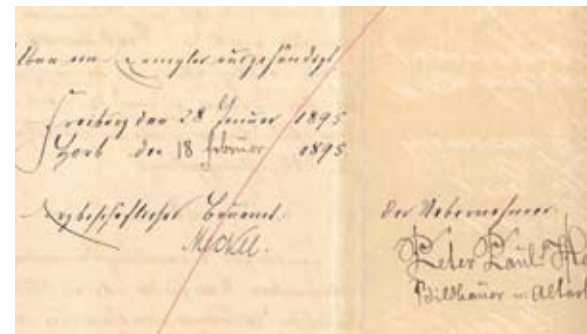 Exemplar ausgehändigt.
Freiburg den 28 Januar 1895
Horb den 18 Februar 1895.
Erzbischöfliches Bauamt. Der Uebernehmer:
Meckel. Peter Paul
Bildhauer u. Altarb